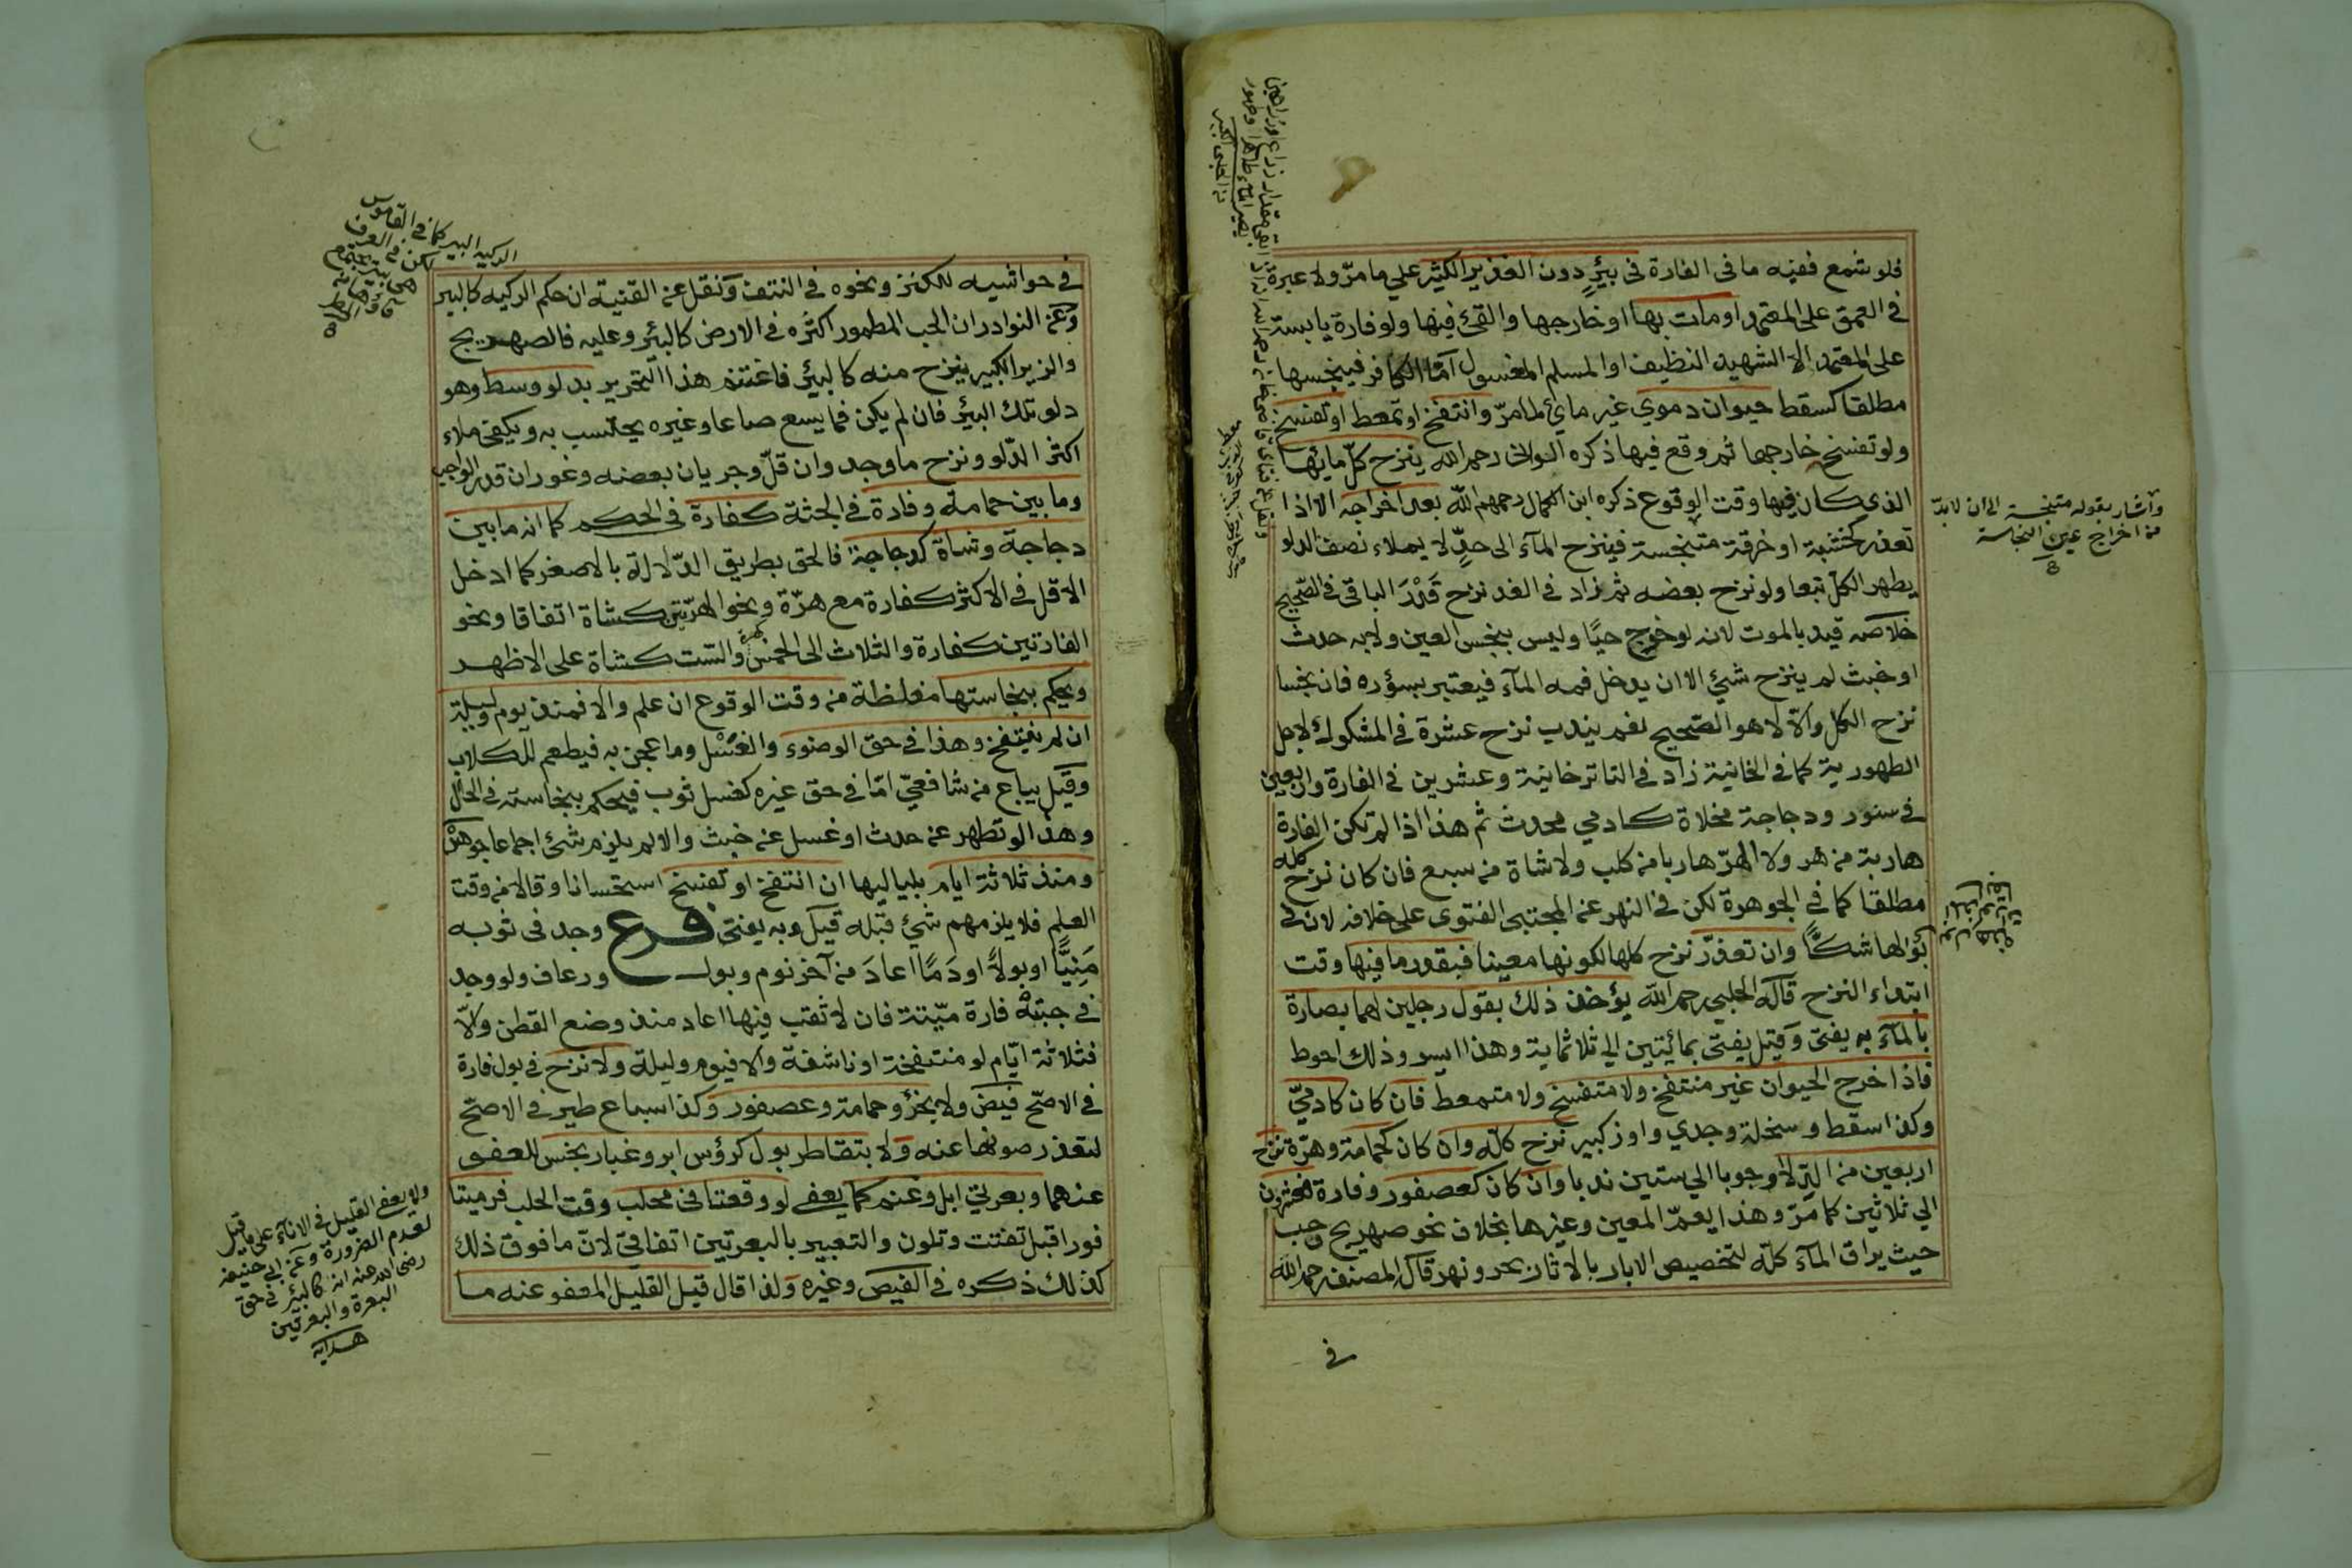 فلو شمع ففيه ما في الفارة في بيئر دون الغدير الكثير علي ما مرّ ولا عبرة
في العمق على المعتمد او مات بها او خارجها والقئ فيها ولو فارة يابسة
على المعتمد الا الشهيد النظيف او المسلم المغسول امّا الكافر فينجسها
مطلقا كسقط حيوان دموي غير مائ لما مرّ وانتفخ او تمعط او تفسخ
ولو تفسخ خارجها ثم وقع فيها ذكره الوالى رحمه الله ينزح كلّ مائها
الذى كان فيها وقت الوقوع ذكره ابن الكمال رحمهم الله بعد اخراجه الا اذا
تعذر كخشبة او خرقة متنجسة فينزح المآء الى حدٍّ لا يملاء نصف الدلو
يطهر الكلّ تبعا ولو نزح بعضه ثم زاد في الغد نزح قَدْرَ الباقى في الصّحيح
خلاصه قيد بالموت لانه لو خرج حيًّا وليس بنجس العين ولا به حدث
او خبث لم ينزح شئ الا ان يدخل فمه المآء فيعتبر بسؤره فان نجسا
نزح الكل والاّ لا هو الصّحيح نعم يندب نزح عشرة في المشكوك لاجل
الطهورية كما في الخانية زاد في التاترخانية وعشرين في الفارة واربعين
في سنور ودجاجة مخلاة كادمي محدث ثم هذا اذا لم تكن الفارة
هاربة من هر ولا الهرّ هاربا من كلب ولا شاة من سبع فان كان نزح كله
مطلقا كما في الجوهرة لكن في النهر عن المجتبى الفتوى على خلافه لان في
بولها شكًّا وان تعذّر نزح كلها لكونها معينا فبقدر ما فيها وقت
ابتداء النزح قاله الحلبي رحمه الله يؤخذ ذلك بقول رجلين لهما بصارة
بالمآء به يفتى وقيل يفتى بمائتين الي ثلاثماية وهذا ايسر وذلك احوط
فاذا خرج الحيوان غير منتفخ ولا متفسخ ولا متمعط فان كان كادميّ
وكذا سقط وسخلة وجدي واوز كبير نزح كلّه وان كان كحمامة وهرّة نزح
اربعين من الدّلاء وجوبا الي ستين ندبا وان كان كعصفور وفارة فعشرون
الي ثلاثين كما مرّ وهذا يعمّ المعين وغيرها بخلاف نحو صهريج وحب
حيث يراق المآء كلّه لتخصيص الابار بالاثار بحر ونهر قال المصنف رحمه الله
في
وآشار بقوله متنجسة الى ان لا بدّ
من اخراج عين النجاسة
في حواشيه للكنز ونحوه في النتف ونقل عن القنية ان حكم الركيه كالبير
وعن النوادر ان الحب المطمور اكثره في الارض كالبئر وعليه فالصهريج
والزير الكبير ينزح منه كالبئر فاغتنم هذا التحرير بدلو وسط وهو
دلو تلك البيئر فان لم يكن فما يسع صاعا وغيره يحتسب به ويكفى ملاء
اكثر الدّلو ونزح ما وجد وان قلّ وجريان بعضه وغوران قدر الواجب
وما بين حمامة وفارة في الجثة كفارة في الحكم كما ان ما بين
دجاجة وشاة كدجاجة فالحق بطريق الدّلالة بالاصغر كما ادخل
الاقل في الاكثر كفارة مع هرّة ونحو الهرّتين كشاة اتفاقا ونحو
الفارتين كفارة والثلاث الى الخمس كهرّة والسّت كشاة على الاظهر
ويحكم بنجاستها مغلظة من وقت الوقوع ان علم والا فمنذ يوم وليلة
ان لم ينتفخ وهذا في حق الوضوء والغسْل وما عجن به فيطعم للكلاب
وقيل يباع من شافعيّ امّا في حق غيره كغسل ثوب فيحكم بنجاسته في الحال
وهذا لو تطهر عن حدث او غسل عن خبث والا لم يلزم شئ اجماعا جوهرة
ومنذ ثلاثة ايام بلياليها ان انتفخ او تفسخ استحسانا وقالا من وقت
العلم فلا يلزمهم شئ قبله قيل وبه يفتى فرع وجد في ثوبه
مَنِيًّا او بولاً او دَمًا اعادَ من آخر نوم وبول ورعاف ولو وجد
في جبته فارة ميّتة فان لا ثقب فيها اعاد منذ وضع القطن والاّ
فثلاثة ايّام لو منتفخة او ناشفة والا فيوم وليلة ولا نزح في بول فارة
في الاصحّ فيض ولا بخرؤ حمامة وعصفور وكذا سباع طير في الاصحّ
لتعذر صونها عنه ولا بتقاطر بول كرؤس ابر وغبار نجس للعفو
عنهما وبعرتي ابل وغنم كما يعفى لو وقعتا في محلب وقت الحلب فرميتا
فورا قبل تفتت وتلون والتعبير بالبعرتين اتفاقيّ لانّ ما فوق ذلك
كذلك ذكره في الفيض وغيره ولذا قال قيل القليل المعفو عنه ما
الركيه البير كما في القاموس
لكن في العرف
ولا يعفى القليل في الانآء على ما قيل
لعدم الضرورة وعن ابي حنيفة
رضى الله عنه انه كالبئر في حق
البعرة والبعرتين
هدايه